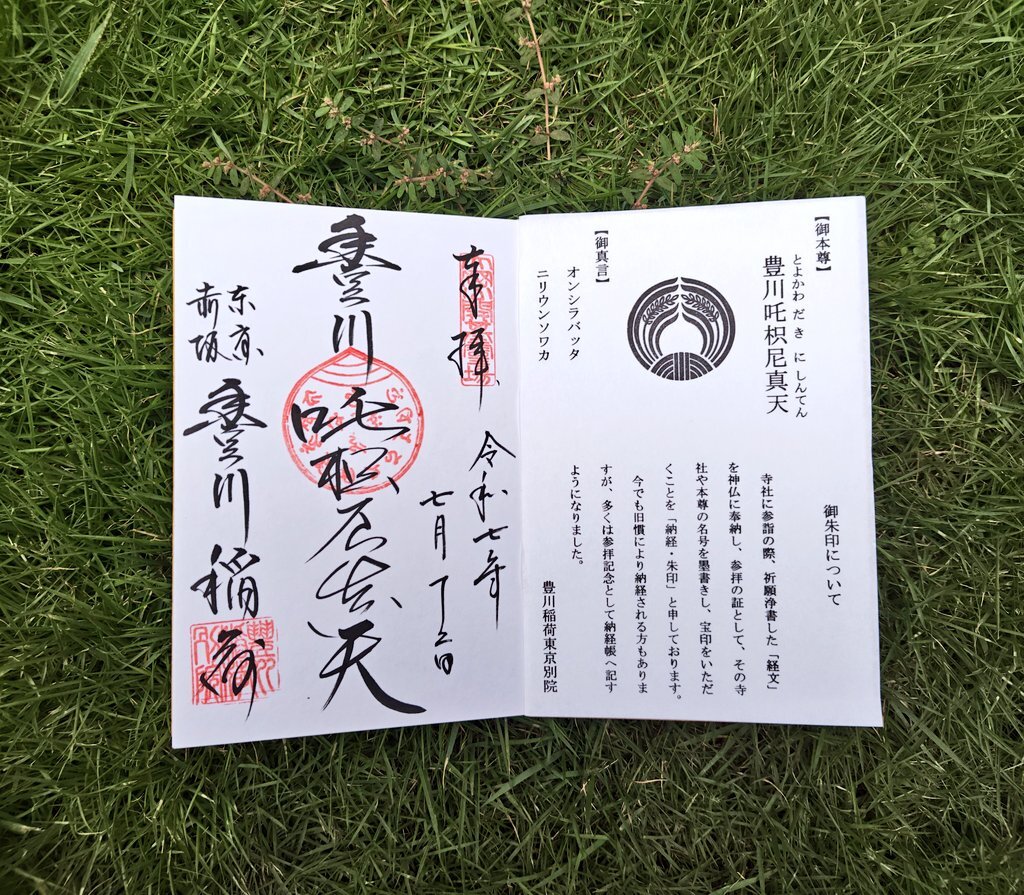 【御本尊】
とよかわ だ き に しんてん
豊川吒枳尼真天
【御真言】
オンシラバッタ
ニリウンソワカ
御朱印について
寺社に参詣の際、祈願浄書した「経文」
を神仏に奉納し、参拝の証として、その寺
社や本尊の名号を墨書きし、宝印をいただ
くことを「納経・朱印」と申しております。
今でも旧慣により納経される方もありま
すが、多くは参拝記念として納経帳へ記す
ようになりました。
豊川稲荷東京別院
奉拝
令和七年
七月
豊川吒枳尼真天
東京
赤坂
豊川稲荷